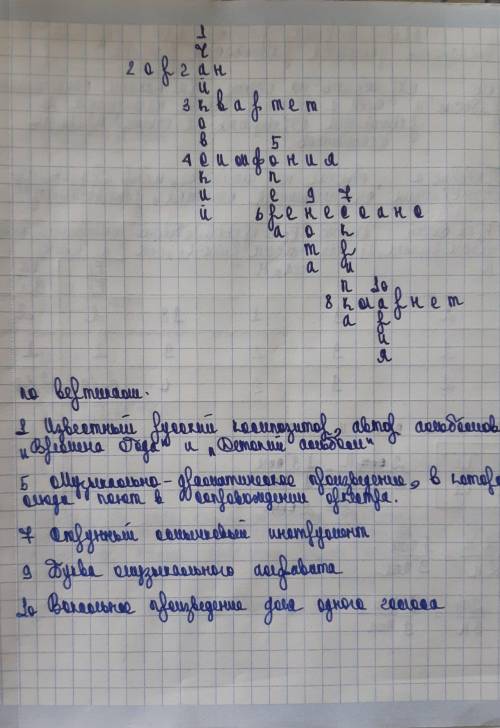 1 чайковский
2 орган
3 квартет
4 симфония
5 опера
6 ренессанс
9 нота
7 скрипка
8 кларнет
10 ария
по вертикали.
1 Известный русский композитор, автор альбомов
"Времена Года" и "Детский альбом"
5 Музыкально-драматическое произведение, в котором
люди поют в сопровождении оркестра.
7 Струнный смычковый инструмент
9 Буква музыкального алфавита
10 Вокальное произведение для одного голоса